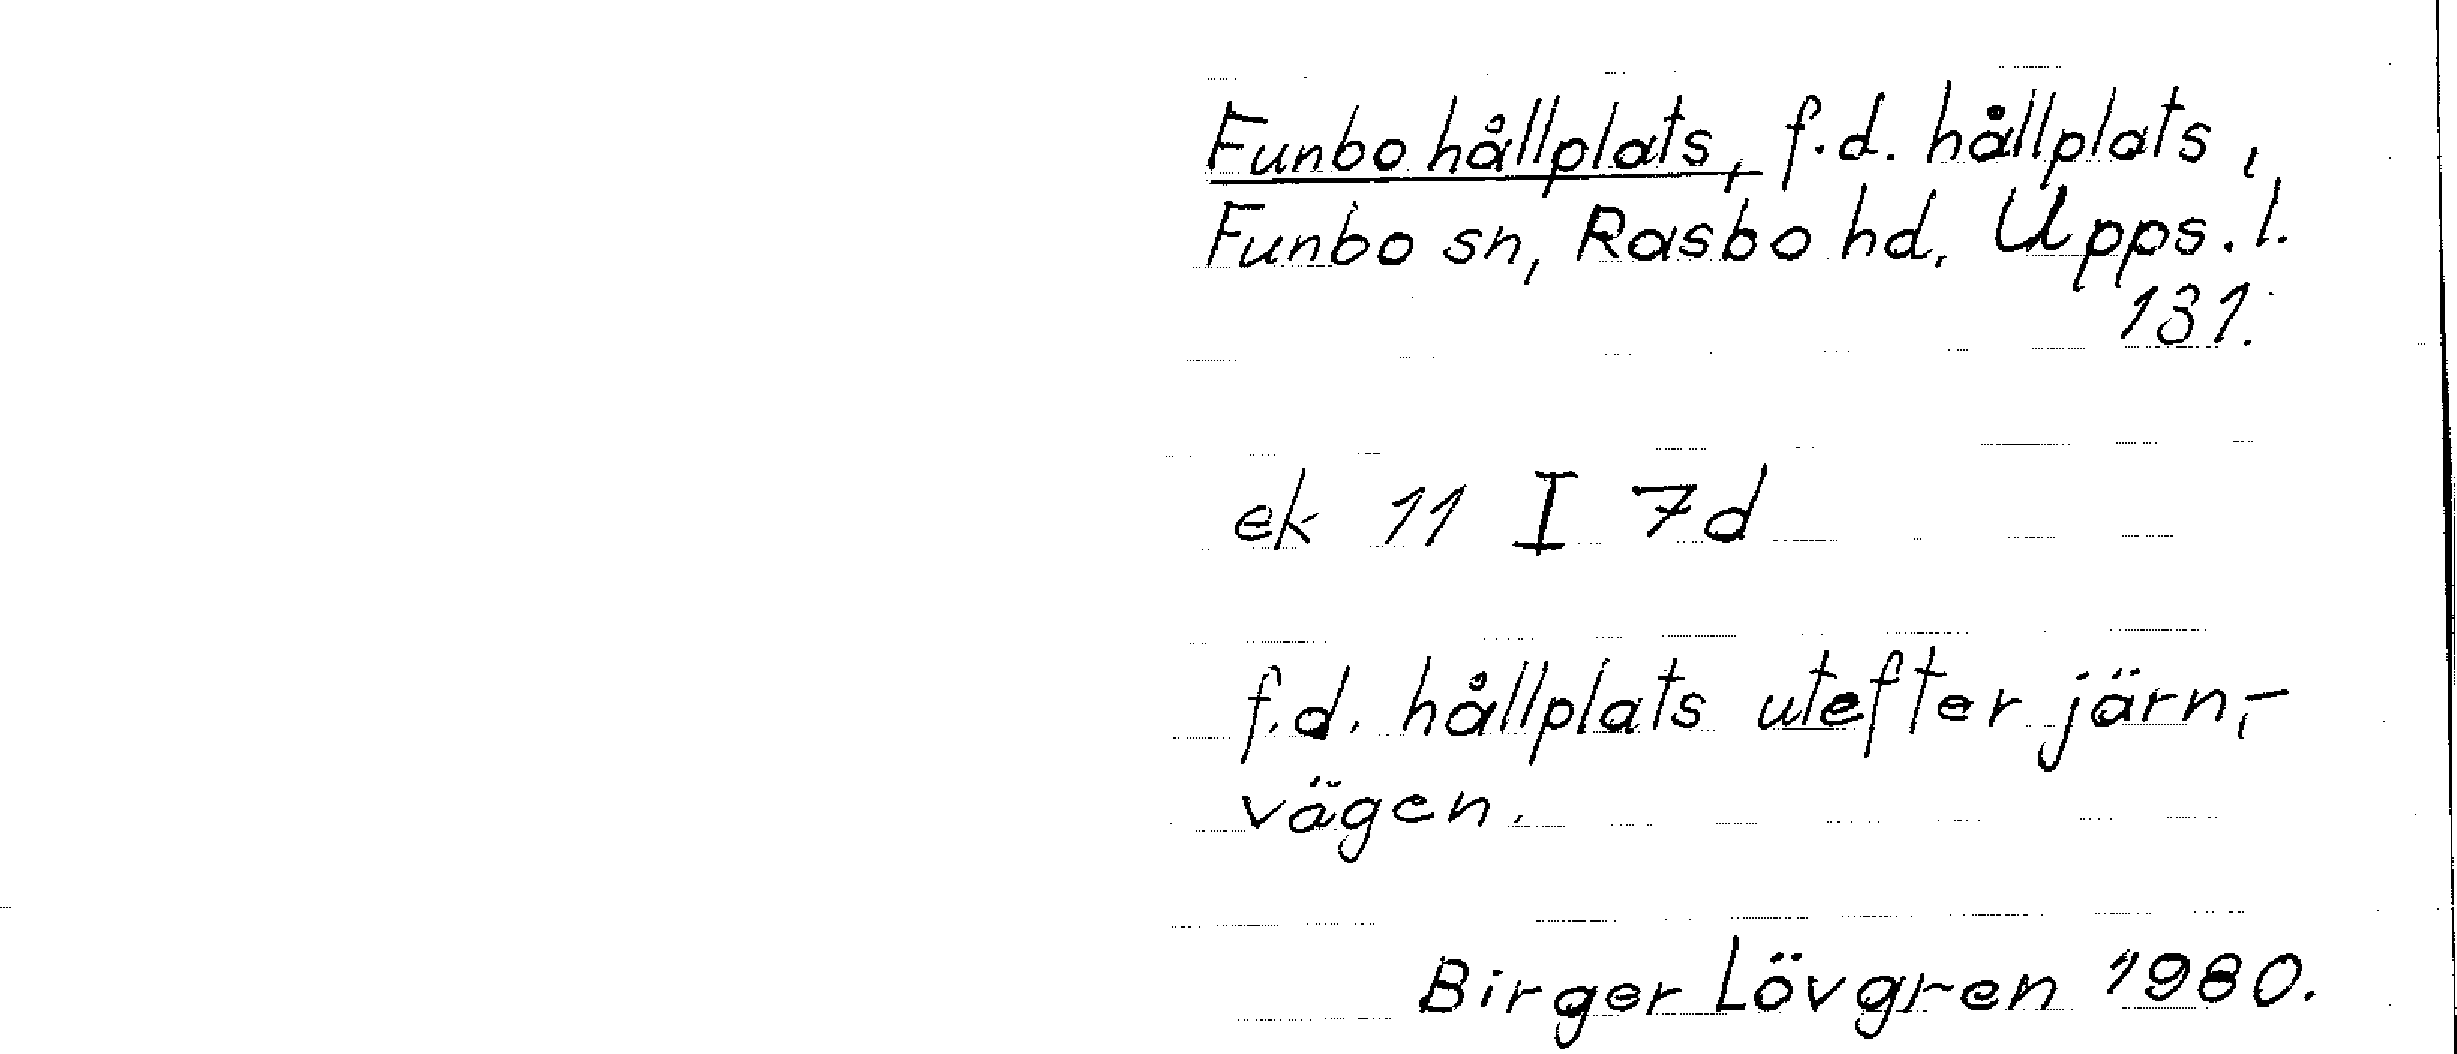 Funbo hållplats, f.d. hållplats,
Funbo sn, Rasbo hd. Upps. l.
131.
ek 11 I 7d
f.d. hållplats utefter järn,-
vägen.
Birger Lövgren 1980.